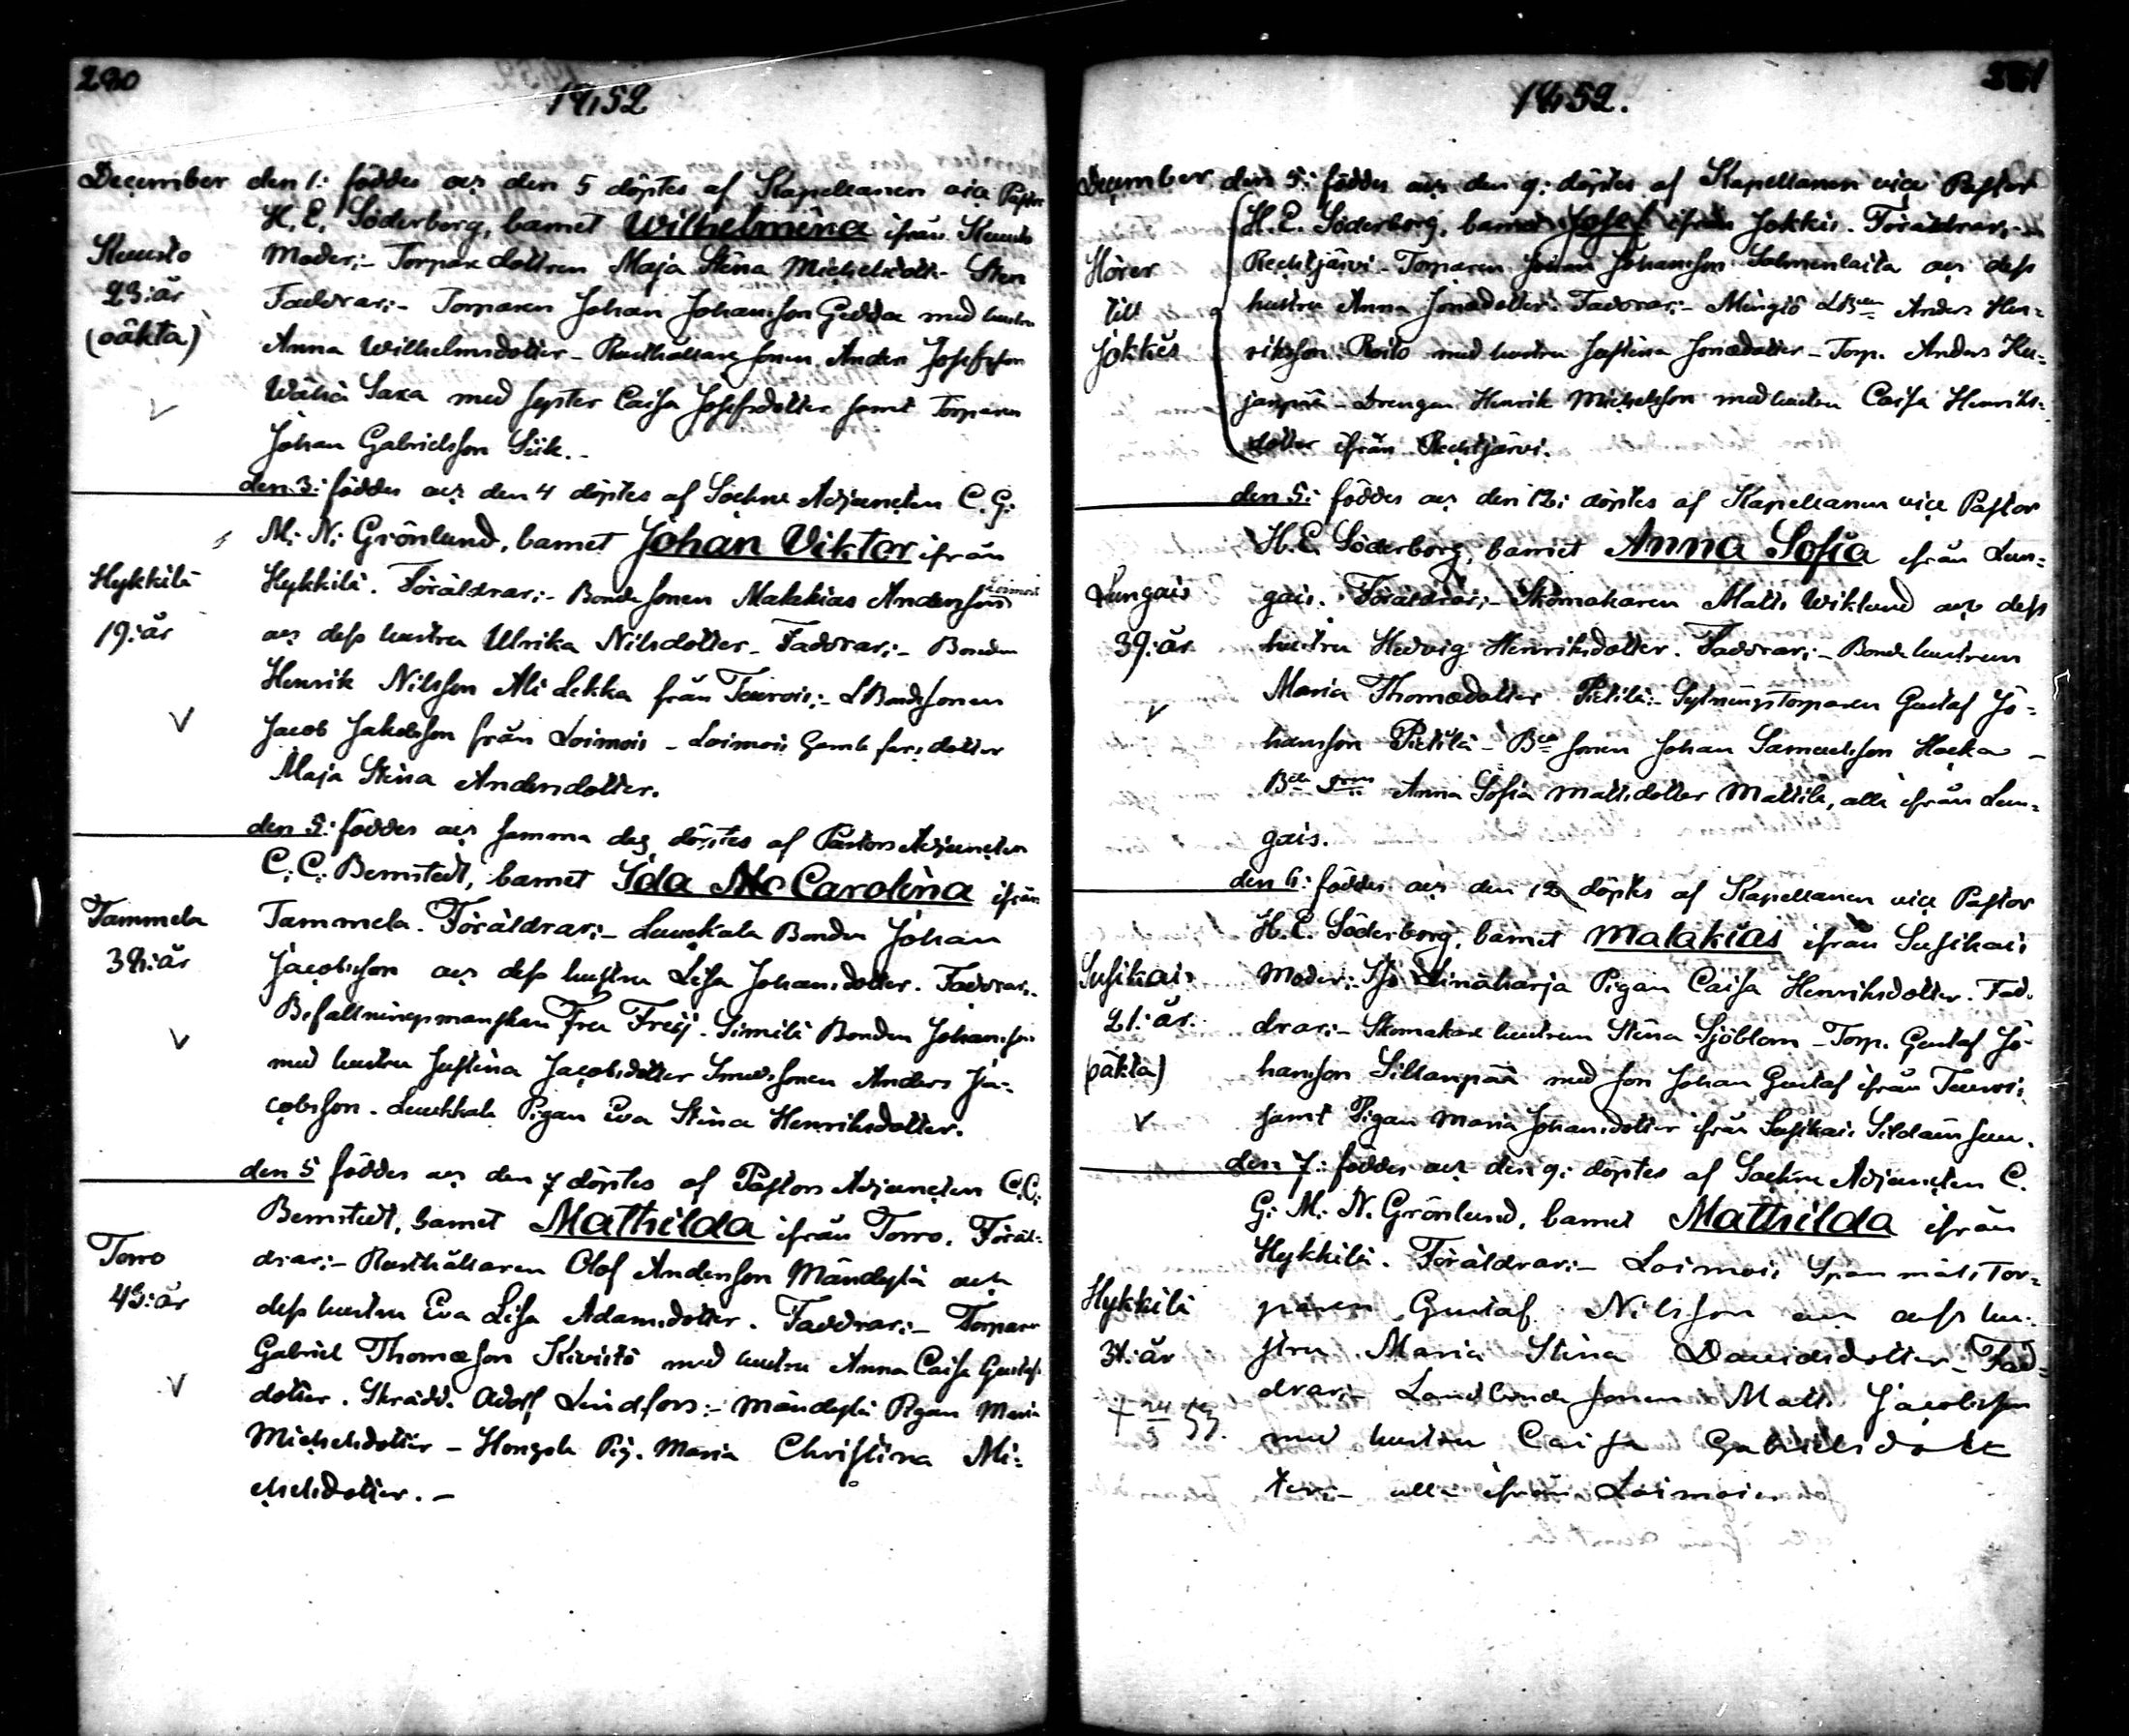 280
1852
December den 1: föddes och den 5 döptes af Kapellanen vice Pastor
H. E. Söderborg, barnet Wilhelmina ifrån Kuusto
Kuusto
Moder:- Torpare dottren Maja Stina Michelsdotter Sten
23:år
Faddrar:- Torparen Johan Johansson Gedda med hustru
(oäkta)
Anna Wilhelmsdotter - Rusthållare sonen Anders Josefsson
Wähä Saxa med syster Caisa Josefsdotter samt Torparen
Johan Gabrielsson Siik.-
den 3: föddes och den 4 döptes af Sockne Adjuncten C. G.
M. N. Grönlund, barnet Johan Viktor ifrån
Hykkilä
Hykkilä. Föräldrar:- Bonde sonen Malakias Andersson Loimois
19:år
och dess hustru Ulrika Nilsdotter - Faddrar:- Bonden
Henrik Nilsson Ali Lekka från Teurois:- L Bondesonen
Jacob Jakobsson från Loimois - Loimois
Maja Stina Andersdotter.
den 5: föddes och samma dag döptes af Pastors Adjuncten
C. C. Bernstedt, barnet Ida Carolina ifrån
Tammela
Tammela. Föräldrar:- Luukkala Bonden Johan
38:år
Jacobsson och dess hustru Lisa Johansdotter. Faddrar:-
Befallningsmanskan Fru Freij - Simola Bonden Johansson
med hustru Justina Jacobsdotter Smedssonen Anders Ja-
cobsson - Luukkala Pigan Eva Stina Henriksdotter.
den 5 föddes och den 7 döptes af Pastors Adjuncten C. C.
Bernstedt, barnet Mathilda ifrån Torro. Föräl-
Torro
drar:- Rusthållaren Olof Andersson Mändylä och
43:år
dess hustru Eva Lisa Adamsdotter. Faddrar:- Torparen
Gabriel Thomasson Kivistö med hustru Anna Caisa Gustafs
dotter. Skrädd. Adolf Lindfors:- Mändylä Pigan Maria
Michelsdotter - Hongola Pig. Maria Christina Mi-
chelsdotter.-
281
1852.
December den 5: föddes och den 9: döptes af Kapellanen vice Pastor
H. E. Söderborg, barnet Josef ifrån Jokkis. Föräldrar:-
Hörer
Rechtjärvi - Torparen Johan Johansson Salmenlaita och dess
till
hustru Anna Jonædotter. Faddrar:- Mingiö LBden Anders Hen-
Jokkis
riksson Roito med hustru Justina Jonædotter - Torp. Anders Ku-
janpää - Drengen Henrik Michelsson med hustru Caisa Henriks-
dotter ifrån Rechtjärvi.
den 5: föddes och den 12: döptes af Kapellanen vice Pastor
H. E. Söderborg, barnet Anna Sofia ifrån Lun-
Lungais
gais. Föräldrar:- Skomakaren Matts Wiklund och dess
39:år
hustru Hedvig Henriksdotter. Faddrar:- Bonde hustrun
Maria Thomædotter Pietilä:- Sytningstorparen Gustaf Jo-
hansson Pietilä - Bde sonen Johan Samuelsson Hacka -
Anna Sofia Mattsdotter Mattila, alla ifrån Lun-
gais.
den 6: föddes och den 12 döptes af Kapellanen vice Pastor
H. E. Söderborg, barnet Malakias ifrån Susikais
Susikais
Moder:- Iso Linäharja Pigan Caisa Henriksdotter. Fad-
21:år.
drar:- Skomakare hustrun Stina Sjöblom - Torp. Gustaf Jo-
(oäkta)
hansson Sillanpää med son Johan Gustaf ifrån Teurois
samt Pigan Maria Johansdotter ifrån Susikais
den 7: föddes och den 9: döptes af Sockne Adjuncten C.
G. M. N. Grönlund, barnet Mathilda ifrån
Hykkilä. Föräldrar:- Loimois Torp-
Hykkilä
paren Gustaf Nilsson och dess hu-
31:år
stru Maria Stina Davidsdotter - Fad-
drar:- Landbonde sonen Matts Jacobsson
53.
med hustru Caisa Gabrielsdott
ter:- alla ifrån Loimois